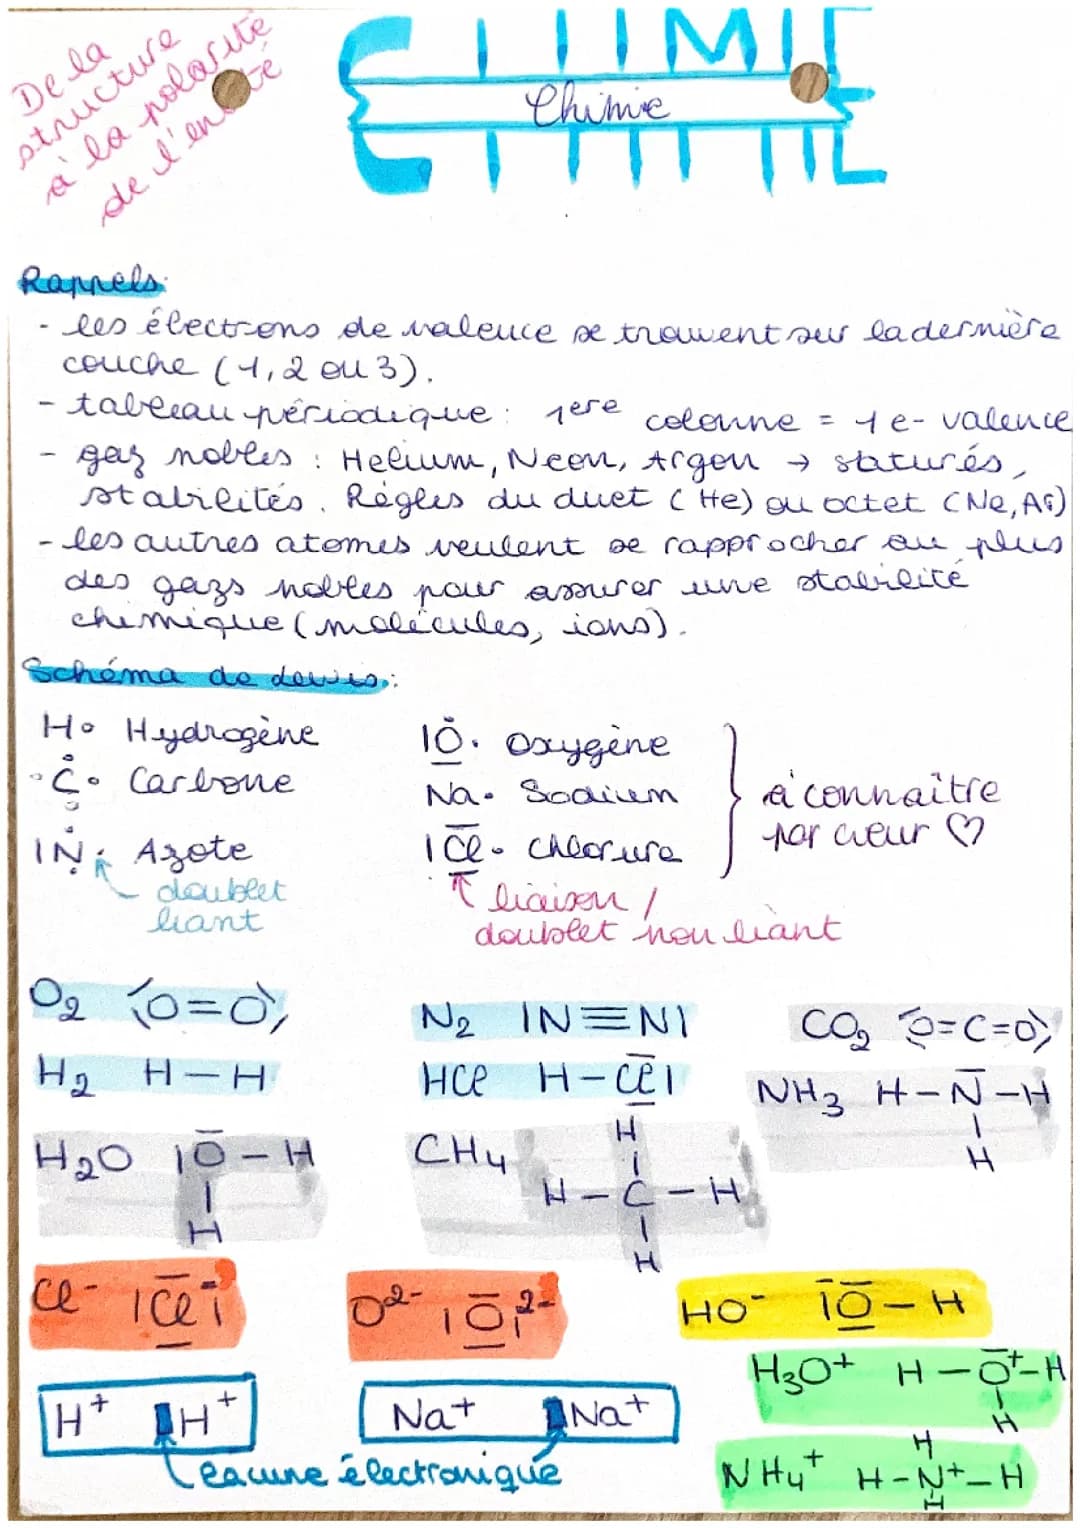 De la
structure
à la polarité
de l'entité
CHIMIE
Chimie
Rappels:
- les électrons de valence se trouvent sur la dernière
couche (1, 2 ou 3).
- tableau périodique : 1ere colonne = 1 e- valence
- gaz nobles : Helium, Neon, Argon → staturés,
stabilités. Règles du duet (He) ou octet (Ne, Ar)
- les autres atomes veulent se rapprocher au plus
des gazs nobles pour assurer une stabilité
chimique (molécules, ions).
Schéma de Lewis:
H• Hydrogène
•C• Carbone
|N• Azote
doublet
liant
|O• Oxygène
Na• Sodium
|Cl• Chlorure
à connaître
par cœur ♡
liaison /
doublet non liant
O2 O=O
N2 |N≡N|
CO2 O=C=O
H2 H-H
HCl H-Cl|
NH3 H-N-H
H
H2O |O-H
H
CH4
H
H-C-H
H
Cl- |Cl|-
O2- |O|2-
HO- |O-H
H3O+ H-O+-H
H
H+ H+
Na+ Na+
lacune électronique
NH4+
H
H-N+-H
H